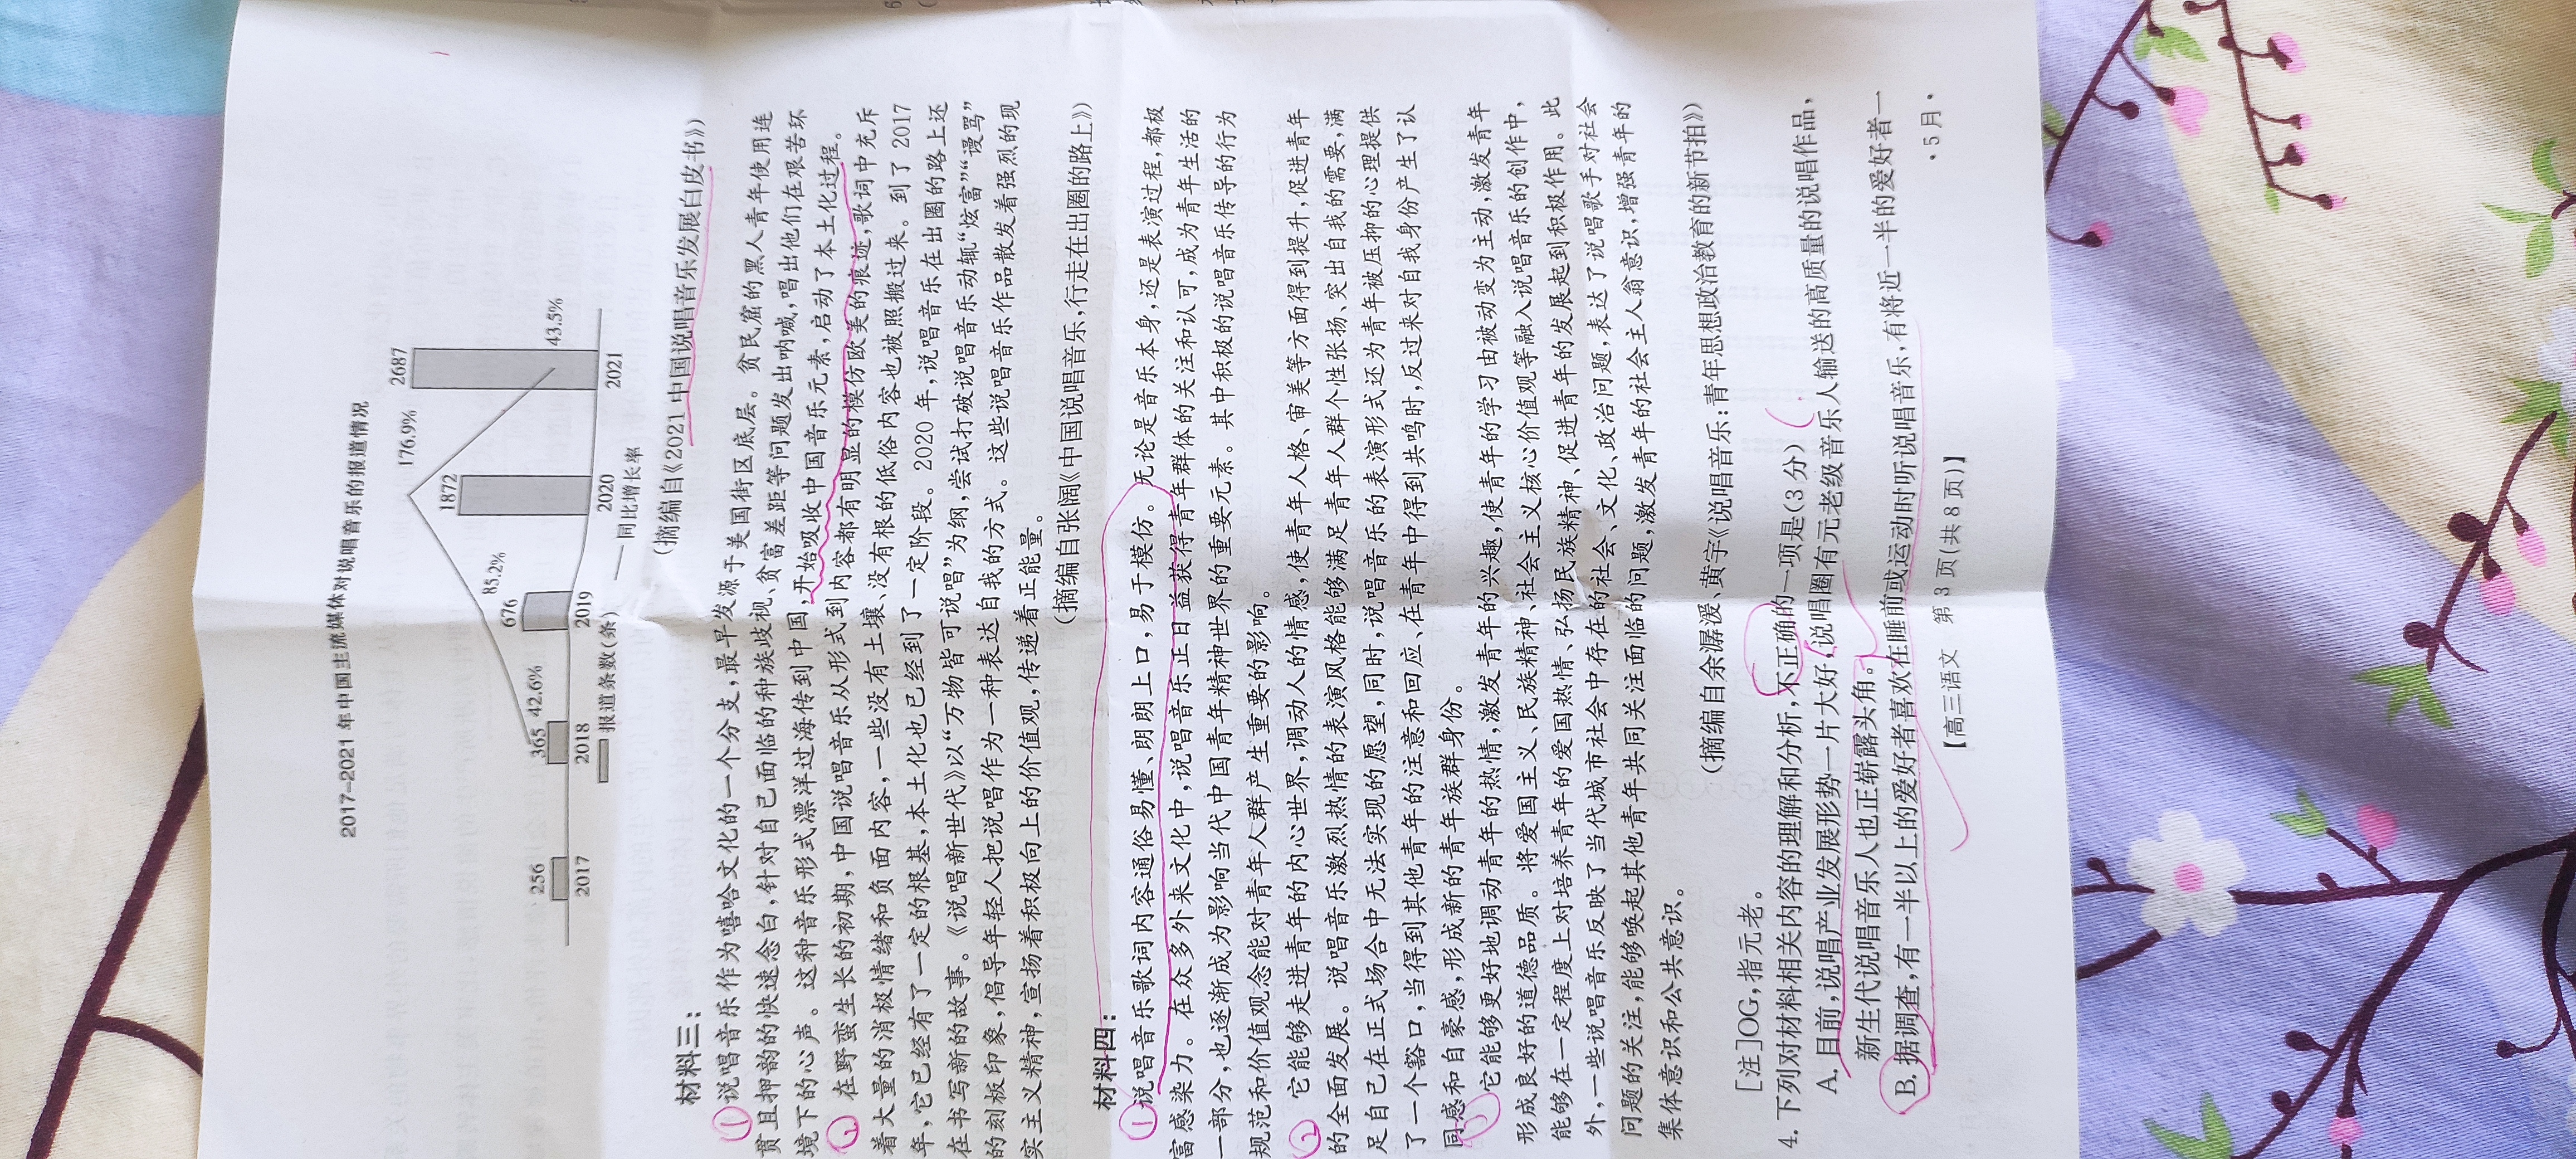 2017-2021年中国主流媒体对说唱音乐的报道情况
256 365 676 1872 2687
42.6% 85.2% 176.9% 43.5%
2017 2018 2019 2020 2021
报道条数(条) 同比增长率
(摘编自《2021中国说唱音乐发展白皮书》)
材料三：
①说唱音乐作为嘻哈文化的一个分支,最早发源于美国街区底层。贫民窟的黑人青年使用连
贯且押韵的快速念白,针对自己面临的种族歧视、贫富差距等问题发出呐喊,唱出他们在艰苦环
境下的心声。这种音乐形式漂洋过海传到中国,开始吸收中国音乐元素,启动了本土化过程。
在野蛮生长的初期,中国说唱音乐从形式到内容都有明显的模仿欧美的痕迹,歌词中充斥
着大量的消极情绪和负面内容,一些没有土壤、没有根的低俗内容也被照搬过来。到了2017
年,它已经有了一定的根基,本土化也已经到了一定阶段。2020年,说唱音乐在出圈的路上还
在书写新的故事。《说唱新世代》以“万物皆可说唱”为纲,尝试打破说唱音乐动辄“炫富”“谩骂”
的刻板印象,倡导年轻人把说唱作为一种表达自我的方式。这些说唱音乐作品散发着强烈的现
实主义精神,宣扬着积极向上的价值观,传递着正能量。
(摘编自张阔《中国说唱音乐,行走在出圈的路上》)
材料四：
①说唱音乐歌词内容通俗易懂、朗朗上口,易于模仿。无论是音乐本身,还是表演过程,都极
富感染力。在众多外来文化中,说唱音乐正日益获得青年群体的关注和认可,成为青年生活的
一部分,也逐渐成为影响当代中国青年精神世界的重要元素。其中积极的说唱音乐传导的行为
规范和价值观念能对青年人群产生重要的影响。
②它能够走进青年的内心世界,调动人的情感,使青年人格、审美等方面得到提升,促进青年
的全面发展。说唱音乐激烈热情的表演风格能够满足青年人群个性张扬、突出自我的需要,满
足自己在正式场合中无法实现的愿望,同时,说唱音乐的表演形式还为青年被压抑的心理提供
了一个豁口,当得到其他青年的注意和回应、在青年中得到共鸣时,反过来对自我身份产生了认
同感和自豪感,形成新的青年族群身份。
它能够更好地调动青年的热情,激发青年的兴趣,使青年的学习由被动变为主动,激发青年
形成良好的道德品质。将爱国主义、民族精神、社会主义核心价值观等融入说唱音乐的创作中,
能够在一定程度上对培养青年的爱国热情、弘扬民族精神、促进青年的发展起到积极作用。此
外,一些说唱音乐反映了当代城市社会中存在的社会、文化、政治问题,表达了说唱歌手对社会
问题的关注,能够唤起其他青年共同关注面临的问题,激发青年的社会主人翁意识,增强青年的
集体意识和公共意识。
(摘编自余潺湲、黄宇《说唱音乐:青年思想政治教育的新节拍》)
[注]OG,指元老。
4. 下列对材料相关内容的理解和分析,不正确的一项是(3分)
A. 目前,说唱产业发展形势一片大好,说唱圈有元老级音乐人输送的高质量的说唱作品,
新生代说唱音乐人也正崭露头角。
B. 据调查,有一半以上的爱好者喜欢在睡前或运动时听说唱音乐,有将近一半的爱好者一
【高三语文 第3页(共8页)】
·5月·